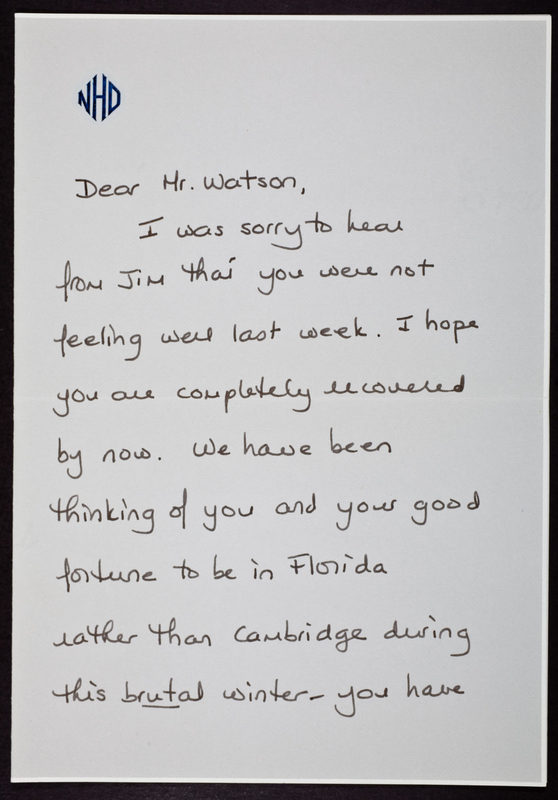 NHD
Dear Mr. Watson,
I was sorry to hear
from Jim that you were not
feeling well last week. I hope
you are completely recovered
by now. We have been
thinking of you and your good
fortune to be in Florida
rather than Cambridge during
this brutal winter - you have